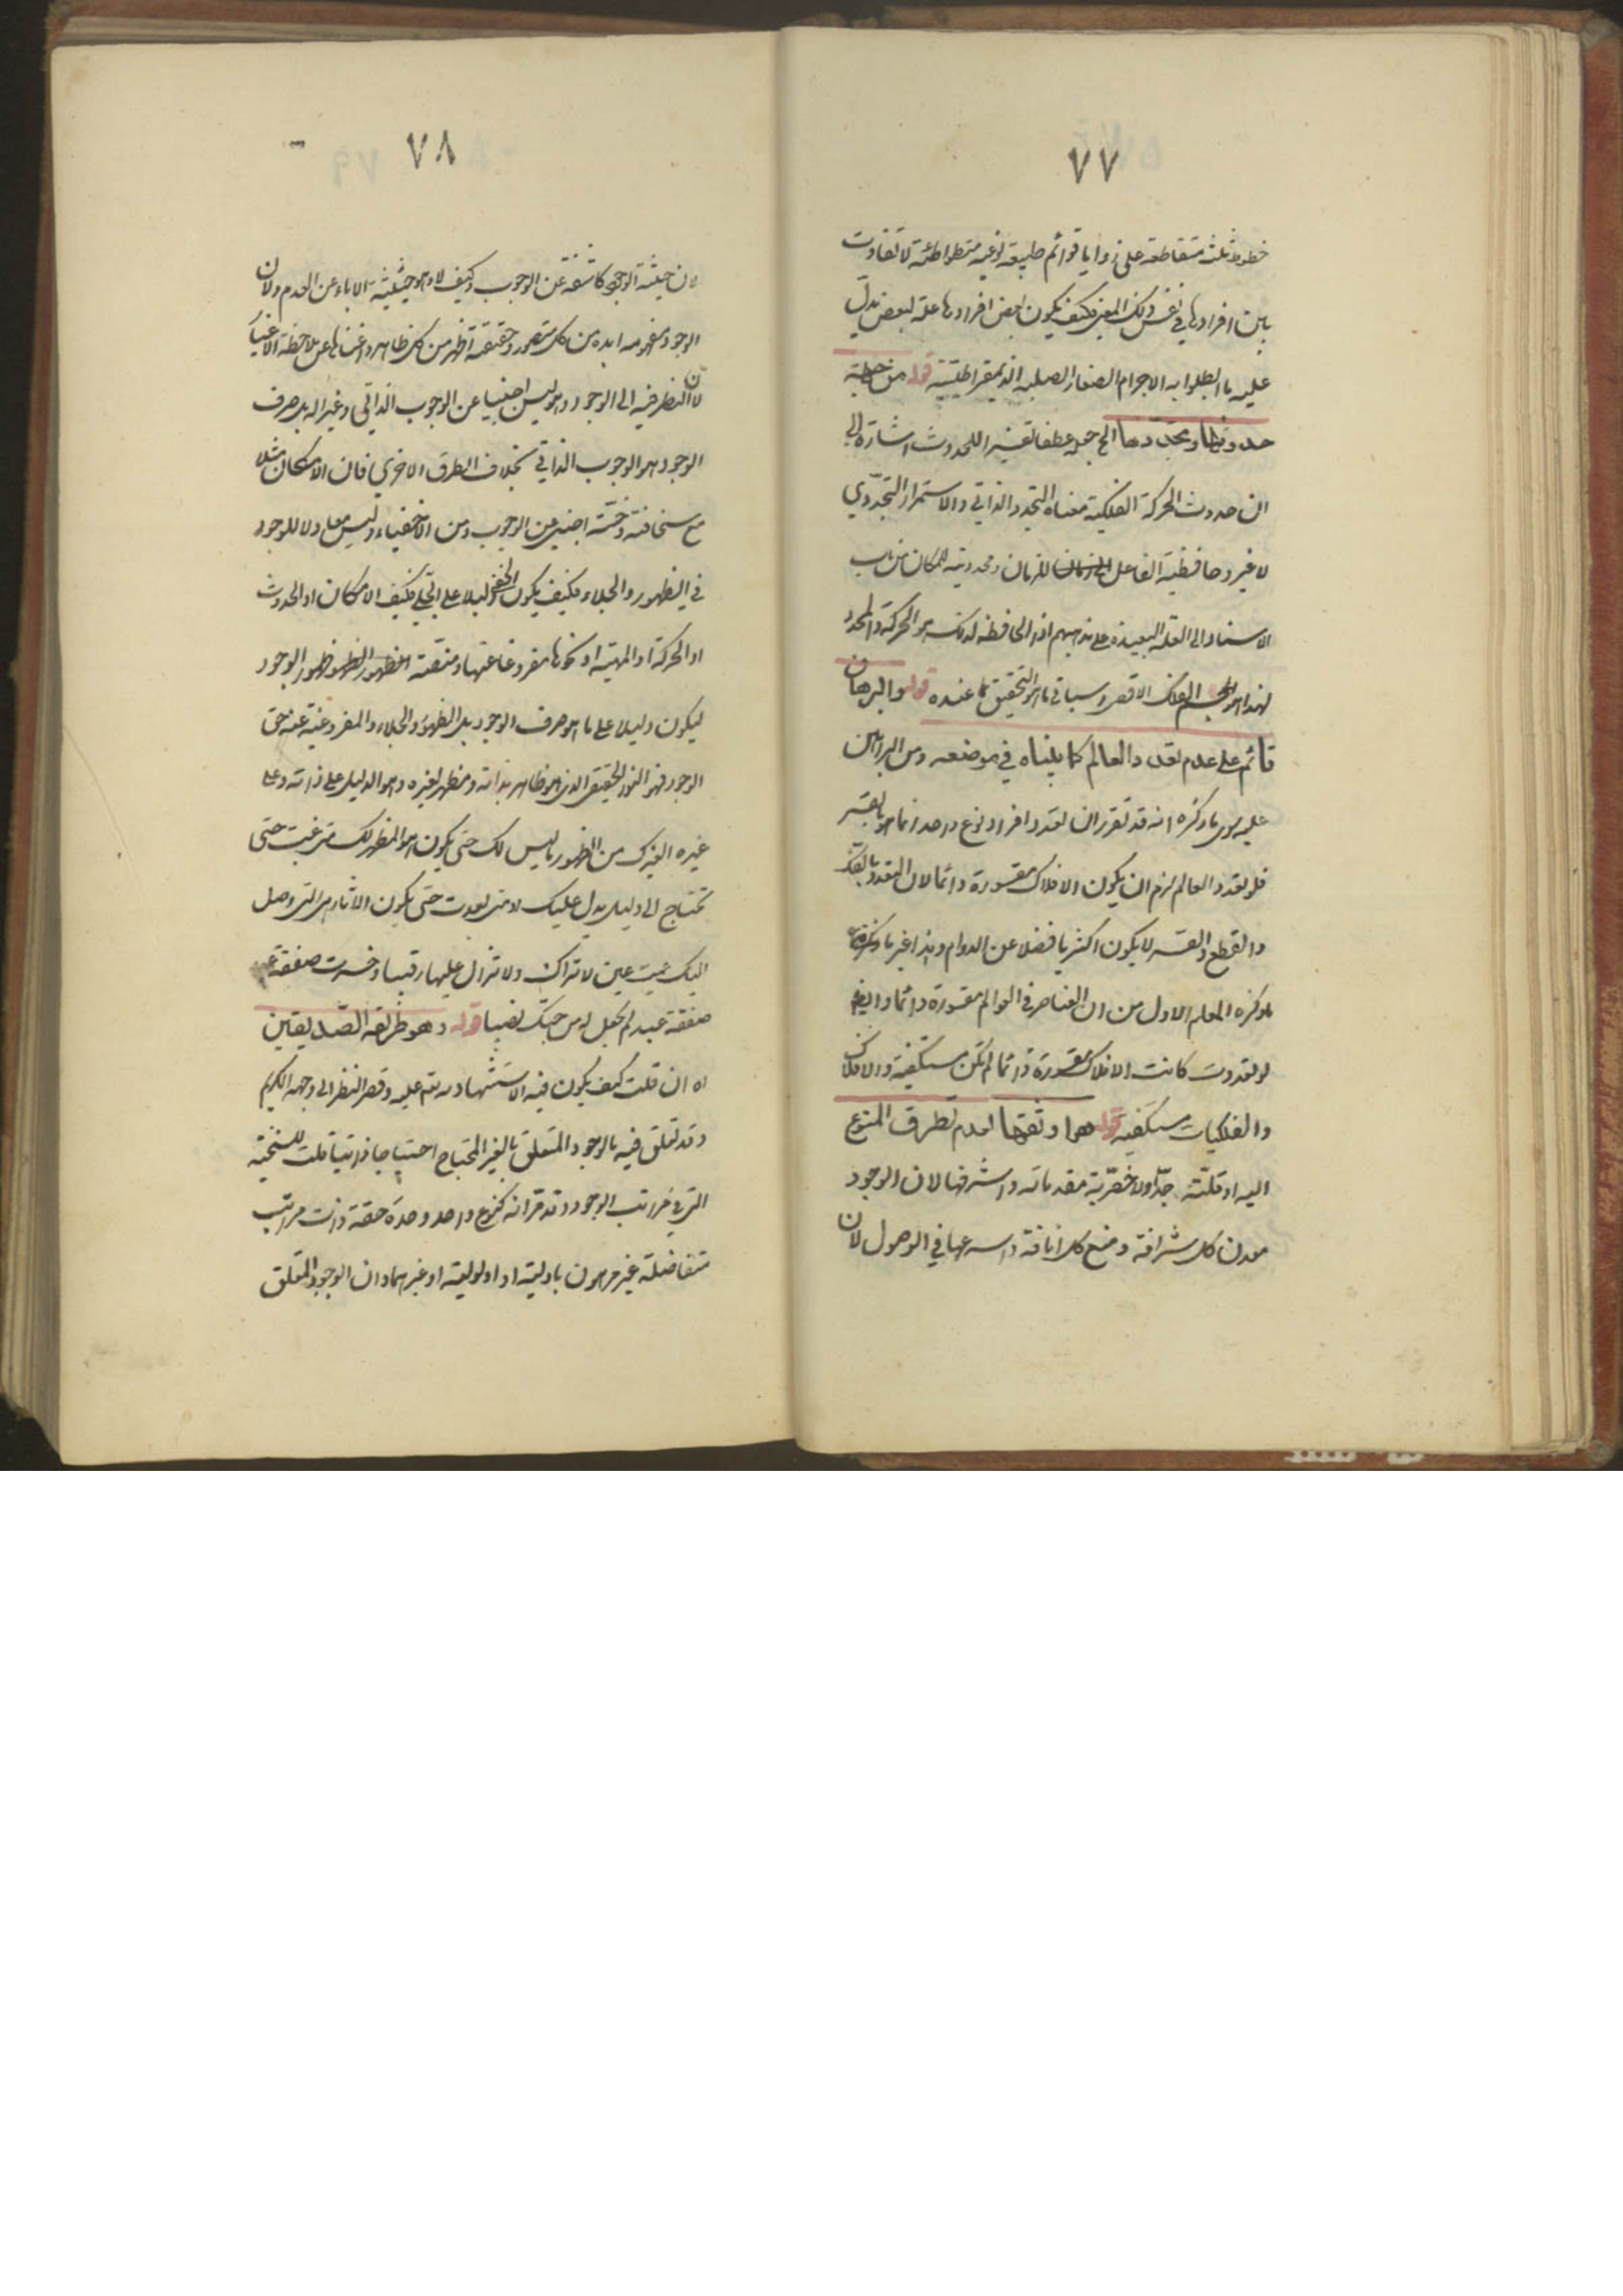 ٧٧
خطوط ثلث متقاطعة على زوايا قوائم طبيعة نوعية متواطئة لا تفاوت
بين افرادها في نفس ذلك المعنى فكيف يكون بعض افرادها علة لبعض يدل
عليه ما ابطلوا به الاجرام الصغار الصلبة الذيمقراطيسية قوله من جهة
حدوثها وتجددها الخ جعله عطفا تفسيرا للحدوث اشارة الى
ان حدوث الحركة الفلكية معناه التجدد الذاتي والاستمرار التجددي
لا غير وحافظية الفاعل للزمان ومحدديته للمكان من باب
الاسناد الى العلة البعيدة على مذهبهم اذ الحافظ لذلك هو الحركة والمحدد
لهذا هو الجسم الفلك الاقصى وسياتي ما هو التحقيق عنده قوله والبرهان
قائم على عدم تعدد العالم كما بيناه في موضعه ومن البراهين
عليه ما ذكره انه قد تقرر ان تعدد افراد نوع واحد انما هو بالقسر
فلو تعدد العالم لزم ان يكون الافلاك مقسورة دائما لان التعدد بالفك
والقطع والقسر لا يكون اكثريا فضلا عن الدوام وهذا غير ما ذكره
ما ذكره المعلم الاول من ان العناصر في العوالم مقسورة دائما وايضا
لو تعددت كانت الافلاك مقسورة دائما لم تكن مستكفية والافلاك
والفلكيات مستكفية قوله هو اوثقها لعدم تطرق المنوع
اليه او قلته جدا ولاخصرية مقدماته واشرفها لان الوجود
معدن كل شرافة ومنبع كل انافة واسرعها في الوصول لان
٧٨
لان حيثية الوجود كاشفة عن الوجوب وكيف لا وهو حيثية الاباء عن العدم ولان
الوجود مفهومه ابده من كل متصور وحقيقته اظهر من كل ظاهر واغناها عن ملاحظة الاغيار
لان النظر فيه الى الوجود وهو ليس اجنبيا عن الوجوب الذاتي وغيرا له بل صرف
الوجود هو الوجوب الذاتي بخلاف الطرق الاخرى فان الامكان مثلا
مع سخافته وخسته اجنبي عن الوجوب ومن الاخفياء وليس معادلا للوجود
في الظهور والجلاء فكيف يكون الخفي دليلا على الجلي فكيف الامكان او الحدوث
او الحركة او المهية او كونها مفروغا عنها ومنصته الظهور ظهور الوجود
ليكون دليلا على ما هو صرف الوجود بل الظهور والجلاء والمفروغية عنه حق
الوجود فهو النور الحقيقي الذي هو ظاهر بذاته ومظهر لغيره وهو الدليل على ذاته وعلى
غيره الغيرك من الظهور ما ليس لك حتى يكون هو المظهر لك متى غبت حتى
تحتاج الى دليل يدل عليك ومتى بعدت حتى يكون الاثار هي التي توصل
اليك عميت عين لا تراك ولا تزال عليها رقيبا وخسرت صفقة
صفقة عبد لم تجعل له من حبك نصيبا قوله وهو طريقة الصديقين
اه ان قلت كيف يكون فيه الاستشهاد به عليه وقصر النظر الى وجهه الكريم
وقد تعلق فيه بالوجود المتعلق بالغير المحتاج احتياجا ذاتيا قلت للسنخية
التي في مراتب الوجود وقد مر انه كنوع واحد وحدة حقة ذات مراتب
متفاضلة غير مرهون باولية او اولوية او غيرهما وان الوجود المتعلق